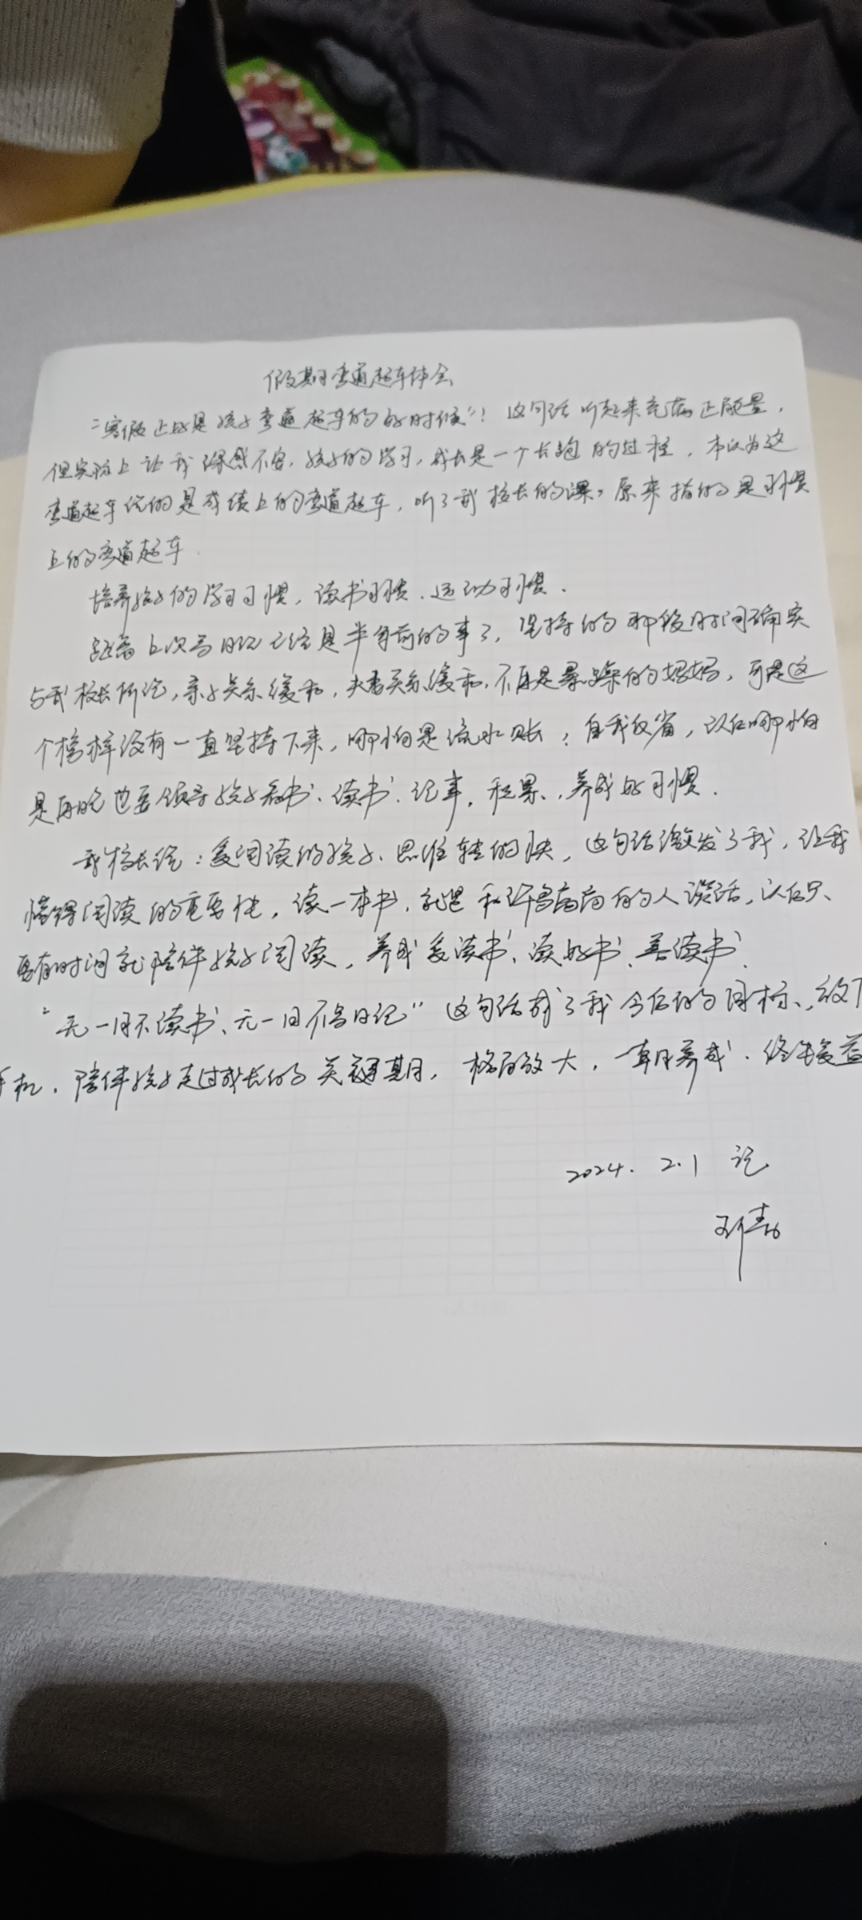 假期弯道超车体会
“寒假正好是孩子弯道超车的好时候”！这句话听起来充满正能量，
但实际上让我深感不安，孩子的学习，成长是一个长跑的过程，本以为这
弯道超车说的是成绩上的弯道超车，听了武校长的课，原来指的是习惯
上的弯道超车．
培养孩子的学习习惯，读书习惯、运动习惯．
距离上次写日记已经是半年前的事了，坚持的那段时间确实
与武校长所说，亲子关系缓和，夫妻关系缓和，不再是暴躁的妈妈，可是这
个榜样没有一直坚持下来，哪怕是流水账；自我反省，以后哪怕
是再晚也要领导孩子看书、读书、记事，积累、养成好习惯．
武校长说：爱阅读的孩子、思维转的快，这句话激发了我，让我
懂得阅读的重要性，读一本书，就是和许多高尚的人谈话，以后只
要有时间就陪伴孩子阅读，养成爱读书、读好书、善读书
“无一日不读书、无一日不写日记”这句话成了我今后的目标、放下
手机，陪伴孩子走过成长的关键期，格局放大，一朝养成．终生受益
2024．2.1 记